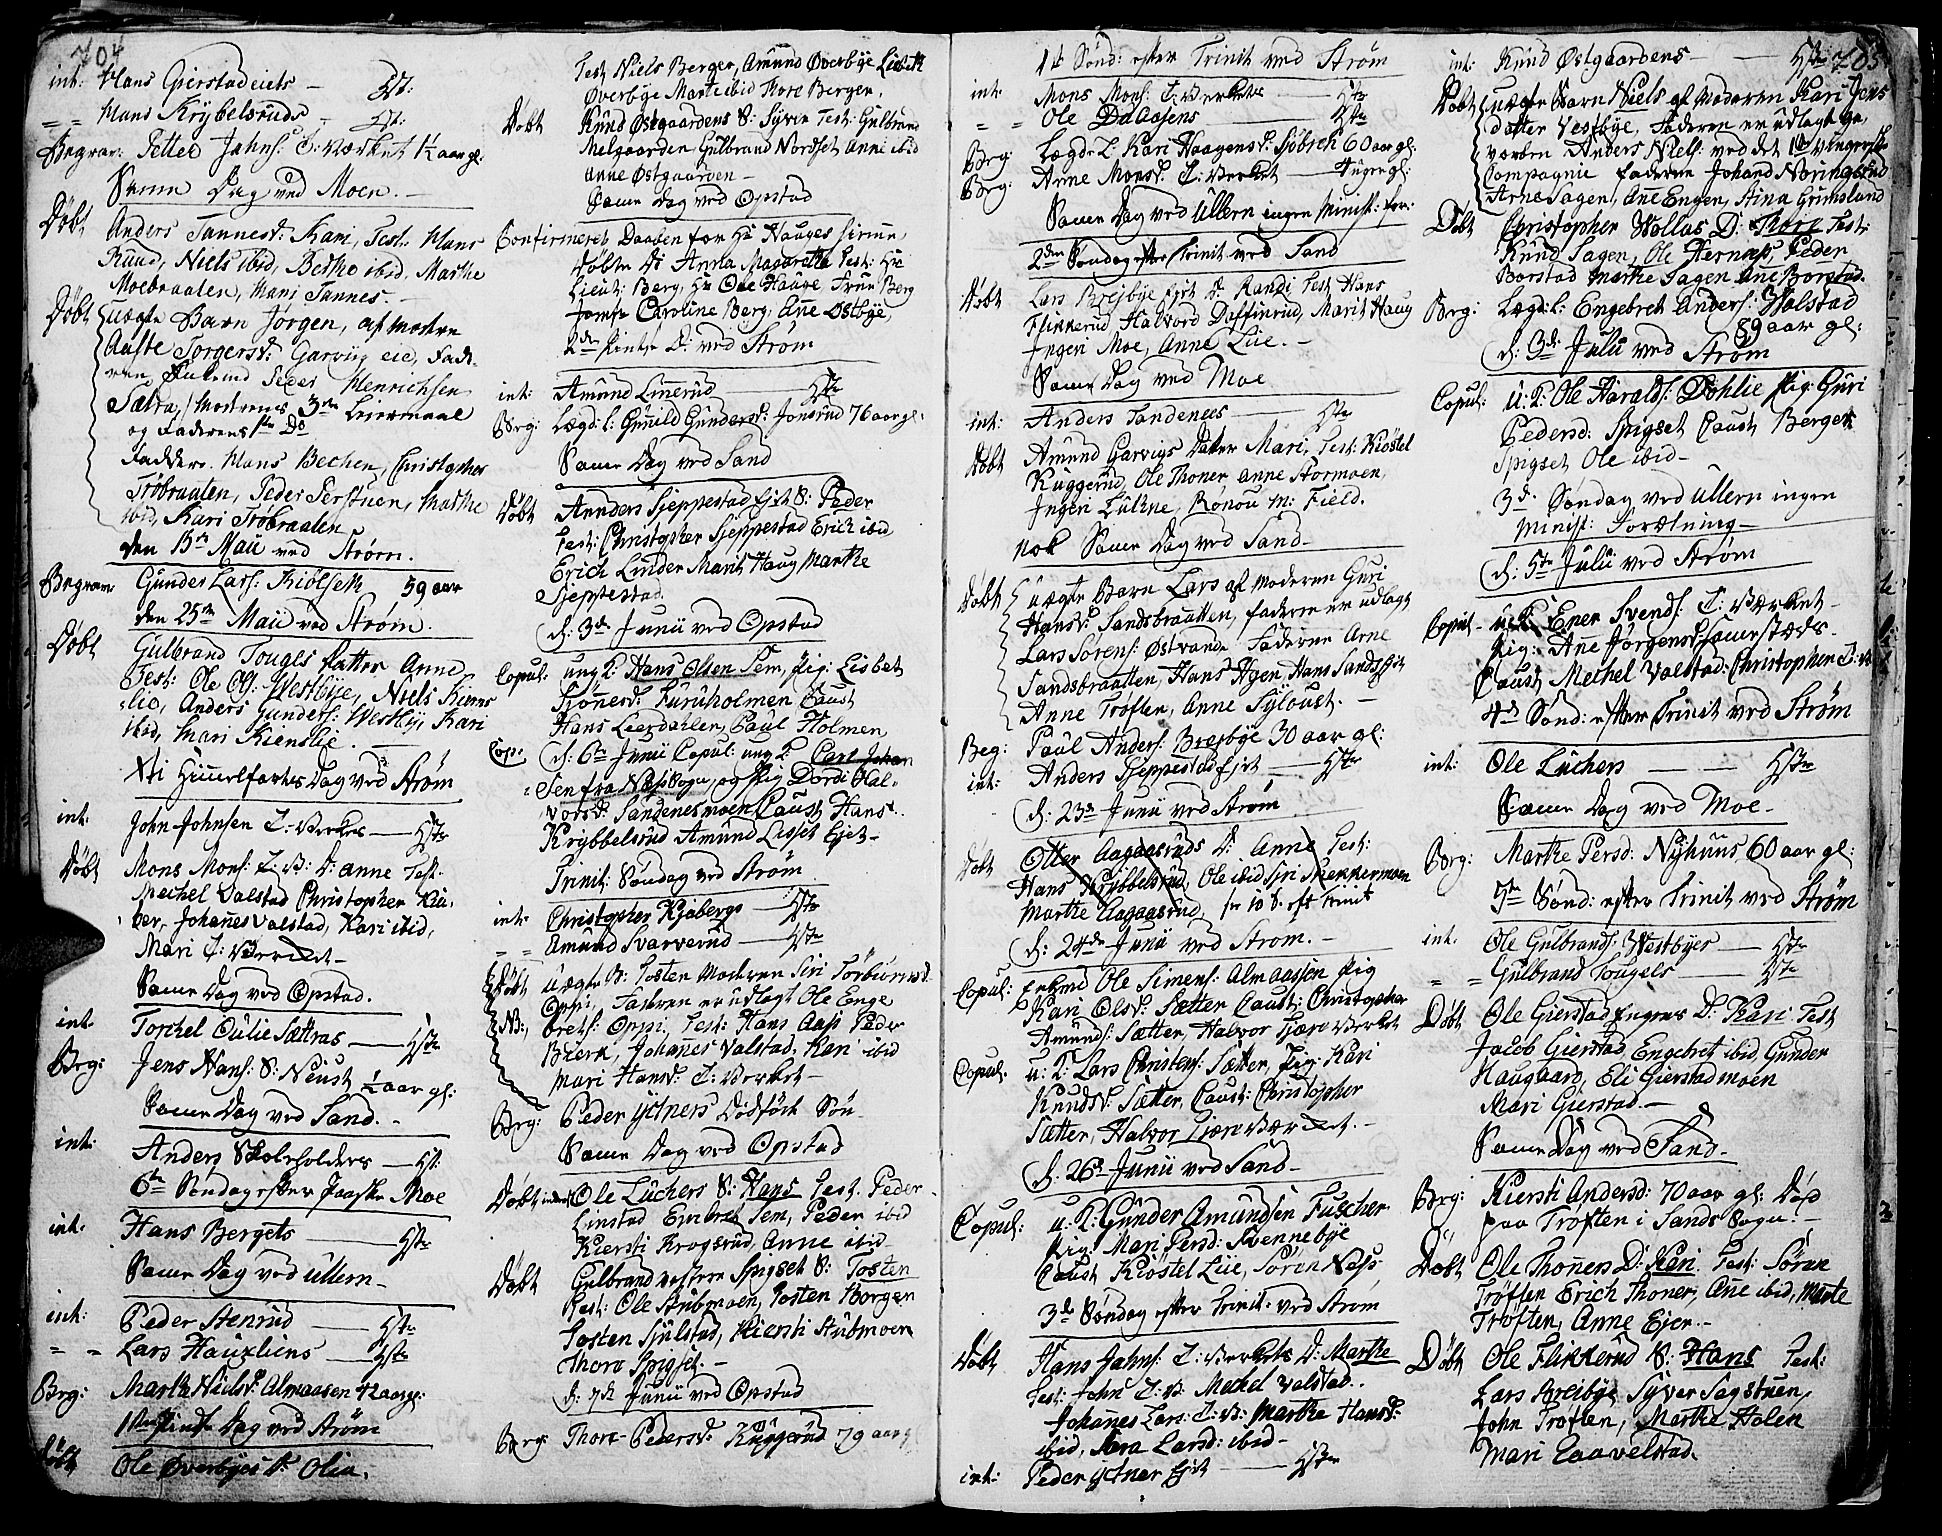 704
int: Hans Gierstadeiets - Hst:
" " Hans Krybelsruds - Hst:
Begrav: Petter Johns: O: Værket 1½ aar gl:
Samme Dag ved Moen.
Døbt Anders Tannesd: Kari, Test. Hans
Ruud, Niels ibid, Berthe ibid, Marthe
Moebraaten, Mari Tannes.
Døbt uægte Barn Jørgen, af Modren
Aaste Torgersd: Garviig eie, Fad-
ren Peder Henrichsen
Sætra, Modrens 3die Leiermaal
og Faderens 1te Do
Faddere. Hans Bechen, Christopher
Trøbraaten, Peder Perstuen, Marthe
ibid, Kari Trøbraaten
den 15de Maii ved Strøm.
Begraven Gunder Lars: Kiølseth 59 aar
den 25de Maii ved Strøm.
Døbt Gulbrand Touges datter Anne
Test: Ole Ols: Westbye, Niels Kiens
lie, Anders Gunders: Westby, Kari
ibid, Mari Kienslie.
Xti Himmelfartes Dag ved Strøm
int. John Johnsen O: Verkes - Hstr
Døbt Mons Mons: O: V: D: Anne Test.
Mechel Valstad Christopher
Johanes Valstad, Kari ibid,
Mari O: Værket -
Samme Dag ved Opstad.
int. Torchel Oulie Sættras - Hstr
Brg: Jens Hans: S: Neust ½ aar gl:
Samme Dag ved Sand.
int: Anders Skoleholders - Hst:
6te Søndag efter Paaske Moe
int. Hans Bergets - Hstr
Samme Dag ved Ullern
int: Peder Stenrud - Hstr
" " Lars Hauxliens - Hstr
Brg: Marthe Nielsd: Almaasen 42 aar gl:
1ste Pintse Dag ved Strøm
Døbt Ole Øverbyes D: Olia.
Test Niels Berger, Amund Øverbye Lisbeth
Øverbye Marte ibid Thore Bergen.
Døbt Knud Østgaardens S: Syver Test: Gulbrand
Melgaarden, Gulbrand Nordset Anni ibid
Anne Østgaarden -
Samme Dag ved Opstad
Confirmeret Daaben for Hr Hauges hiemme
døbte D: Anna Magarethe Test: Hr
Lieut: Berg, Hr Ole Hauge Frue Berg
Jomfr Caroline Berg, Ane Østbye,
2den Pintse D: ved Strøm
int: Amund Linerud - Hstr
Brg: Lægd: l: Gunild Gundersd: Jonsrud 76 aar gl:
Samme Dag ved Sand
Døbt Annders Sjeppestad Ejet S: Peder
Test: Christopher Sjeppestad Erich ibid
Erich Linder Marit Haug Marthe
Sjeppestad.
d: 3de Junii ved Opstad
Copul: ung K: Hans Olsen Sem, Pig: Lisbet
Furuholmen Caust
Hans Leerdahlen, Paul Holmen
Cop: d: 6te Junii Copul: ung K: Carl Johan
sen fra Næs Sogn, og Pig Dordi Hal-
vorsd: Sandenesmoen Caust Hans
Krybbelsrud Amund Lisset Ejet -
Trinit: Søndag ved Strøm
int: Christopher Kjabergs - Hstr
" " Amund Svarverud - Hstr
Døbt uægte B: Tosten Moderen Siri Torbiørnsd:
Oppi, Faderen er udlagt Ole Enge
NB: brets: Oppi, Test: Hans Aasi Peder
Bierk, Johanes Valstad, Kari ibid
Mari Hansd: O: Verket -
Brg: Peder yttners Dødfødt Søn
Samme Dag ved Opstad
Døbt Ole Lüchers S: Hans Test. Peder
Linstad Embret Sem, Peder ibid
Kiersti Krogsrud, Anne ibid
Døbt Gulbrand vestere Spigset S: Tosten
Test: Ole Stubmoen, Tosten Horgen
Tosten Siulstad, Kiersti Stubmoen
Thora Spigset. -
d: 7de Junii ved Opstad
Brg: Thore Pedersd: Kuggerud 79 aar g
1te Sønd: efter Trinit ved Strøm
int. Mons Mons: O: Verkets - Hstr
" " Ole Dalaasens - Hstr
Brg: Lægd: L: Kari Haagensd: Sjøbsch 60 aar gl:
Brg: Anne Monsd: O: Verket - 4 uger gl:
Samme Dag ved Ullern ingen Minist: for:
2den Søndag efter Trinit ved Sand
Døbt Lars Brejbye Ejet D: Randi Test Hans
Flikkerud Halvord Daffinrud, Marit Haug
Ingeri Moe, Anne Lie. -
Samme Dag ved Moe
int: Anders Sandenees - Hstr
Døbt Amund Garvigs Dater Mari, Test: Kiøstel
Kuggerud, Ole Thoner, Anne Stormoen,
Ingeri Lutne, Rønou M: Field.
Nok Samme Dag ved Sand -
Døbt uægte Barn Lars af Moderen Guri
Hansd: Sandsbraatten, Faderen er udlagt
Lars Sørens: Østvande Faderne Arne
Sandsbraatten, Hans Agen, Hans Sandsejet
Anne Trøften, Anne Syloust. -
Beg: Paul Anders: Brejbye 30 aar gl:
int: Anders Sjeppestad Ejet - Hstr
d: 23de Junii ved Strøm
Døbt Otter Aagaasruds D: Anne Test:
Hans Krybbelsrud, Ole ibid Siri Stekkermoen
Marthe Aagaasrud, se 10 S. eft Trinit
d: 24de Junii ved Strøm. -
Copul: Enkemd Ole Simens: Almaassen Pig
Kari Olsd: Sætter Caust: Christopher
Amunds: Sætter, Halvor Hære Verket
Copul: u: K: Lars Christens: Sætter, Pig: Kari
Knudsd: Sætter, Caust: Christopher
Sætter, Halvor Hiære Værket. -
d: 26de Junii ved Sand -
Copul: u: K: Gunder Amundsen Fuscher
Pig: Mari Persd: Svennebye
Caust Kiøstel Lie, Sören Næss
3de Søndag efter Trinit: ved Strøm
Døbt Hans Johns: O: Verkets D: Marthe
Test: John O: V: Mechel Valstad.
Johanes Lars: O: V: Marthe Hansd:
ibid, Sara Larsd: ibid -
int: Peder yttner Ejet - Hstr
705
int: Knud Østgaardens - Hstr
Døbt uægte Barn Niels af Moderen Kari Jens
datter Vestbye, Faderen er udlagt ge,
vorben Anders Niels: ved det 1te Vingerske
Compagnie Faderne Johand Næringsrud
Arne Sagen, Ane Engen, Stina Grimsland
Døbt Christopher Wollas D: Thore Test:
Knud Sagen, Ole Hernæs, Peder
Borstad Marthe Sagen Ane Borstad.
Brg: Lægd: l: Engebret Anders: Holstad
89 aar gl:
d: 3de Julii ved Strøm
Copul: u: K: Ole Haralds: Dohlie Pig: Guri
Pedersd: Spigset Caust Berger
Spigset Ole ibid -
3de Søndag ved Ullern ingen
Minist: Foretning -
d: 5te Julii ved Strøm
Copul - u: K: Ener Svends: O: Værket -
Pig: Ane Jørgensd: sammesteds -
Caust Mechel Valstad: Christopher O: V:
4de Sønd: efter Trinit ved Strøm
int: Ole Lüchers - Hstr
Samme Dag ved Moe -
Brg: Marthe Persd: Nyhuus 60 aar gl:
5te Sønd: efter Trinit ved Strøm
int. Ole Gulbrands: Westbyes - Hstr
" " Gulbrand Tougels - Hstr
Døbt Ole Gierstad Engnes D: Kari Test
Jacob Gierstad, Engebret ibid, Gunder
Haugaard, Eli Gierstadmoen
Mari Gierstad. -
Samme Dag ved Sand -
Brg: Kiersti Andersd: 70 aar gl: Død
paa Trøften i Sands Sogn. -
Døbt Ole Thoners D: Kari. Test: Søren
Trøften Erich Thoner, Ane ibid, Marte
Trøften, Anne Ejer. -
Døbt Ole Flikkerud S: Hans Test:
Lars Breibye Syver Sagstuen,
John Trøften, Marthe Holen
Mari Laavelstad.